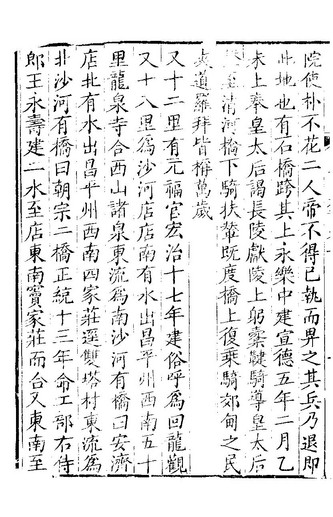 院使朴不花二人帝不得已執而畀之其兵乃退即
此地也有石橋跨其上永樂中建宣德五年二月乙
未上奉皇太后謁長陵獻陵上躬櫜鞬騎導皇太后
至清河橋下騎扶輦既度橋上復乘騎郊甸之民
夾道羅拜皆稱萬歲
又十二里有元福宮宏治十七年建俗呼為回龍觀
又十八里為沙河店店南有水出昌平州西南五十
里龍泉寺合西山諸泉東流為南沙河有橋曰安濟
店北有水出昌平州西南四家莊逕雙塔村東流為
北沙河有橋曰朝宗二橋正統十三年命工部右侍
郎王永壽建一水至店東南竇家莊而合又東南至